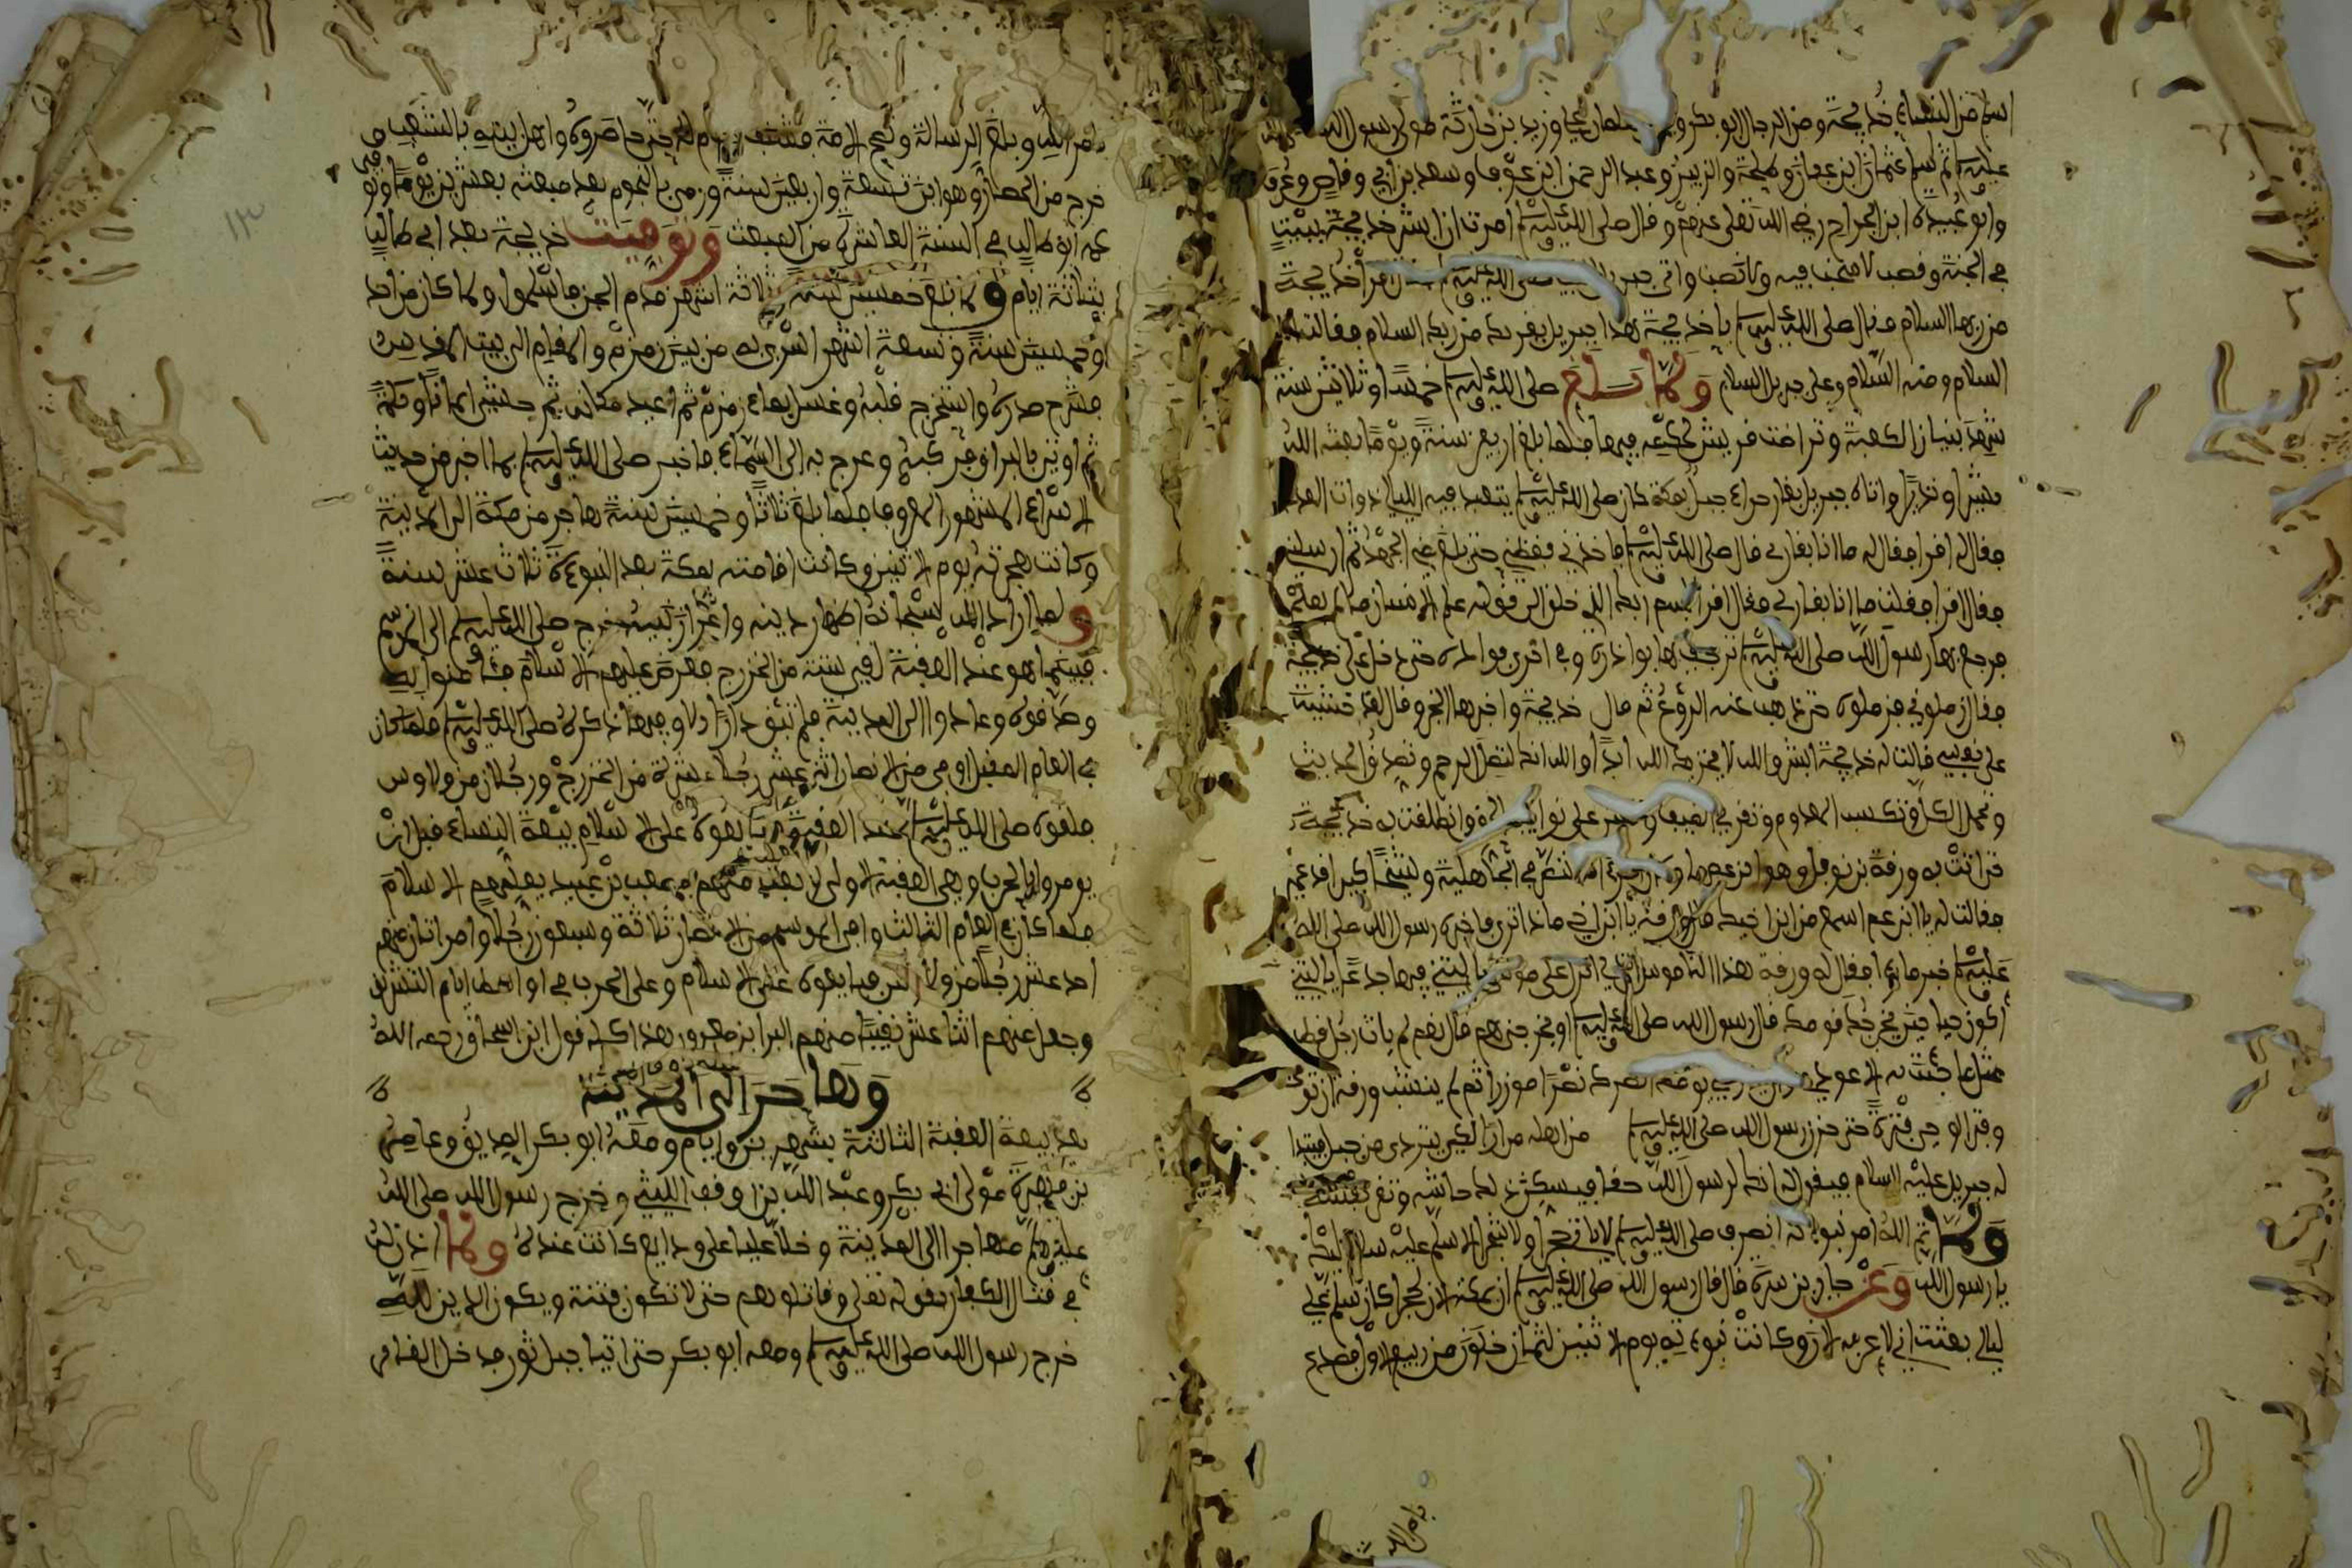 اسلم من النساء خديجة ومن الرجال ابو بكر ومن الغلمان علي وزيد بن حارثة مولى رسول الله صلى الله
عليه وسلم ثم اسلم عثمان ابن عفان وطلحة والزبير وعبد الرحمن ابن عوف وسعد بن ابي وقاص وغيرهم
وابو عبيدة ابن الجراح رضي الله تعلى عنهم وقال صلى الله عليه وسلم امرت ان ابشر خديجة ببيت
في الجنة وقصب لا صخب فيه ولا نصب واتى جبريل النبي صلى الله عليه وسلم فقال اقرأ خديجة
من ربها السلام فقال صلى الله عليه وسلم يا خديجة هذا جبريل يقريك من ربك السلام فقالت الله
السلام ومنه السلام وعلى جبريل السلام ولما بلغ صلى الله عليه وسلم خمسا وثلاثين سنة
شهد بنيان الكعبة وتراضت قريش بحكمه فيها فلما بلغ اربعين سنة ويوما بعثه الله
بشيرا ونذيرا واتاه جبريل بغار حراء جبل بمكة كان صلى الله عليه وسلم يتعبد فيه الليالي ذوات العدد
فقال له اقرا فقال له ما انا بقارئ قال صلى الله عليه وسلم فاخذني فغطني حتى بلغ مني الجهد ثم ارسلني
فقال اقرا فقلت ما انا بقارئ فقال اقرا باسم ربك الذي خلق الى قوله علم الانسان ما لم يعلم
فرجع بها رسول الله صلى الله عليه وسلم ترجف بها بوادره وفي اخرى فواده حتى دخل على خديجة
فقال زملوني فزملوه حتى ذهب عنه الروع ثم قال خديجة واخبرها الخبر وقال لقد خشيت
على نفسي فقالت له خديجة ابشر والله لا يخزيك الله ابدا والله انك لتصل الرحم وتصدق الحديث
وتحمل الكل وتكسب المعدوم وتقري الضيف وتعين على نوائب الحق وانطلقت به خديجة
حتى اتت به ورقة بن نوفل وهو ابن عمها وكان امرءا تنصر في الجاهلية وشيخا كبيرا قد عمي
فقالت له يا ابن عم اسمع من ابن اخيك قال ورقة يا ابن اخي ماذا ترى فاخبره رسول الله صلى الله
عليه وسلم خبر ما رءا فقال له ورقة هذا الناموس الذي انزل على موسى يا ليتني فيها جذعا يا ليتني
اكون حيا حين يخرجك قومك قال رسول الله صلى الله عليه وسلم او مخرجي هم قال نعم لم يات رجل قط
بمثل ما جئت به الا عودي وان يدركني يومك انصرك نصرا موزرا ثم لم ينشب ورقة ان توفي
وفتر الوحي فترة حتى حزن رسول الله صلى الله عليه وسلم من اجله مرارا لكي يتردى من جبل فيتبدا
له جبريل عليه السلام فيقول له انك لرسول الله حقا فيسكن لذلك جاشه وتقر نفسه
ولما تم الله امر نبوته انصرف صلى الله عليه وسلم لا ياتي حجرا ولا شجرا الا سلم عليه سلام عليك
يا رسول الله وعن جابر بن سمرة قال قال رسول الله صلى الله عليه وسلم ان بمكة الان لحجرا كان يسلم علي
ليالي بعثت اني لاعرفه الان وكانت نبوته يوم الاثنين لثمان خلون من ربيع الاول فصدع
بامر الله
بامر الله وبلغ الرسالة ونصح الامة حتى حاصروه واهل بيته بالشعب
خرج من الحصار وهو ابن تسعة واربعين سنة ورمي بالنجوم بعد مبعثه بعشرين يوما وتوفي
عمه ابو طالب في السنة العاشرة من المبعث وتوفيت خديجة بعد ابي طالب
بثلاثة ايام ولما بلغ خمسين سنة وثلاثة اشهر قدم الجن فاسلموا ولما كان من احد
وخمسين سنة وتسعة اشهر اسري به من بين زمزم والمقام الى بيت المقدس
فشرح صدره واستخرج قلبه وغسل بماء زمزم ثم اعيد مكانه ثم حشي ايمانا وحكمة
ثم اوتي بالبراق فركبه وعرج به الى السماء فاخبر صلى الله عليه وسلم بما اخبر من حديث
الاسراء المشهور المعروف فلما بلغ ثلاثا وخمسين سنة هاجر من مكة الى المدينة
وكانت هجرته يوم الاثنين وكانت اقامته بمكة بعد النبوءة ثلاث عشر سنة
ولما اراد الله سبحانه اظهار دينه واعزاز نبيه خرج صلى الله عليه وسلم الى الموسم
فبينما هو عند العقبة لقي ستة من الخزرج فعرض عليهم الاسلام فئامنوا به
وصدقوه وعادوا الى المدينة فلم تبق دار الا وفيها ذكره صلى الله عليه وسلم فلما كان
في العام المقبل اوفى من الانصار اثنى عشر رجلا عشرة من الخزرج ورجلان من الاوس
فلقوه صلى الله عليه وسلم عند العقبة فبايعوه على الاسلام بيعة النساء قبل ان
يومروا بالحرب وهي العقبة الاولى بعث معهم مصعب بن عمير يعلمهم الاسلام
فلما كان في العام الثالث وافى الموسم من الانصار ثلاثة وسبعون رجلا وامراتان منهم
احد عشر رجلا من الاوس فبايعوه على الاسلام وعلى الحرب في اواسط ايام التشريق
وجعل منهم اثنا عشر نقيبا منهم البرا بن معرور هذا كله قول ابن اسحاق رحمه الله
وهاجر الى المدينة
بعد بيعة العقبة الثالثة بشهرين وايام ومعه ابو بكر الصديق وعامر
بن فهيرة مولى ابي بكر وعبد الله بن اوقف الليثي وخرج رسول الله صلى الله
عليه وسلم مهاجرا الى المدينة وخلا عليا على ودايع كانت عنده ولما اذن له
في قتال الكفار بقوله تعلى وقاتلوهم حتى لا تكون فتنة ويكون الدين لله
خرج رسول الله صلى الله عليه وسلم ومعه ابو بكر حتى اتيا جبل ثور فدخل الغار